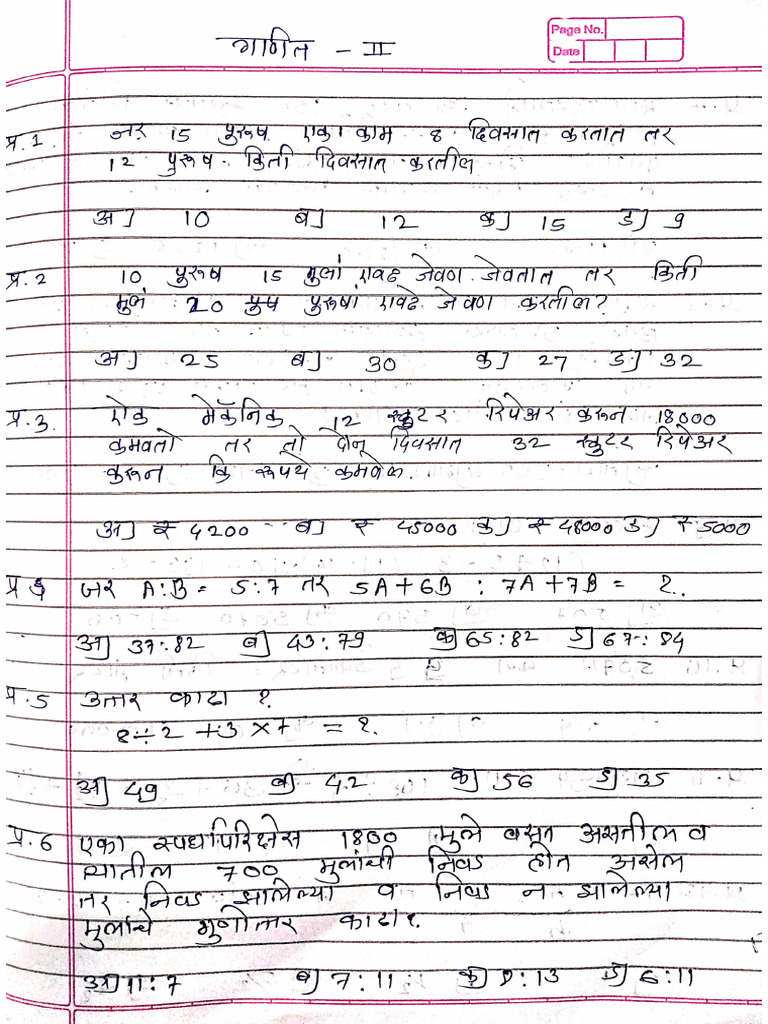 गणित - II
Page No.
Date
प्र.1. जर 15 पुरुष एका काम 8 दिवसात करतात तर
12 पुरुष किती दिवसात करतील
अ] 10 ब] 12 क] 15 ड] 9
प्र.2 10 पुरुष 15 मुलां एवढ जेवण जेवतात तर किती
मुलं 20 पुरुषां एवढे जेवण करतील?
अ] 25 ब] 30 क] 27 ड] 32
प्र.3. ऐक मेकॅनिक 12 स्कुटर रिपेअर करून 18000
कमवतो तर तो दोन दिवसात 32 स्कुटर रिपेअर
करून कि रूपये कमवेल.
अ] ₹ 4200 ब] ₹ 45000 क] ₹ 48000 ड] ₹ 5000
प्र जर A:B = 5:7 तर 5A+6B : 7A+7B = ?.
अ] 37:82 ब] 43:79 क] 65:82 ड] 67:84
प्र.5 उत्तर काढा ?
8÷2 +3 ×7 = ?.
अ] 49 ब] 42 क] 56 ड] 35
प्र.6 एका स्पर्धापरिक्षेस 1800 मुले बसत असतील व
त्यातील 700 मुलांची निवड होत असेल
तर निवड झालेल्या व निवड न झालेल्या
मुलांचे गुणोत्तर काढा?.
अ] 11:7 ब] 7:11 क] 13 ड] 6:11